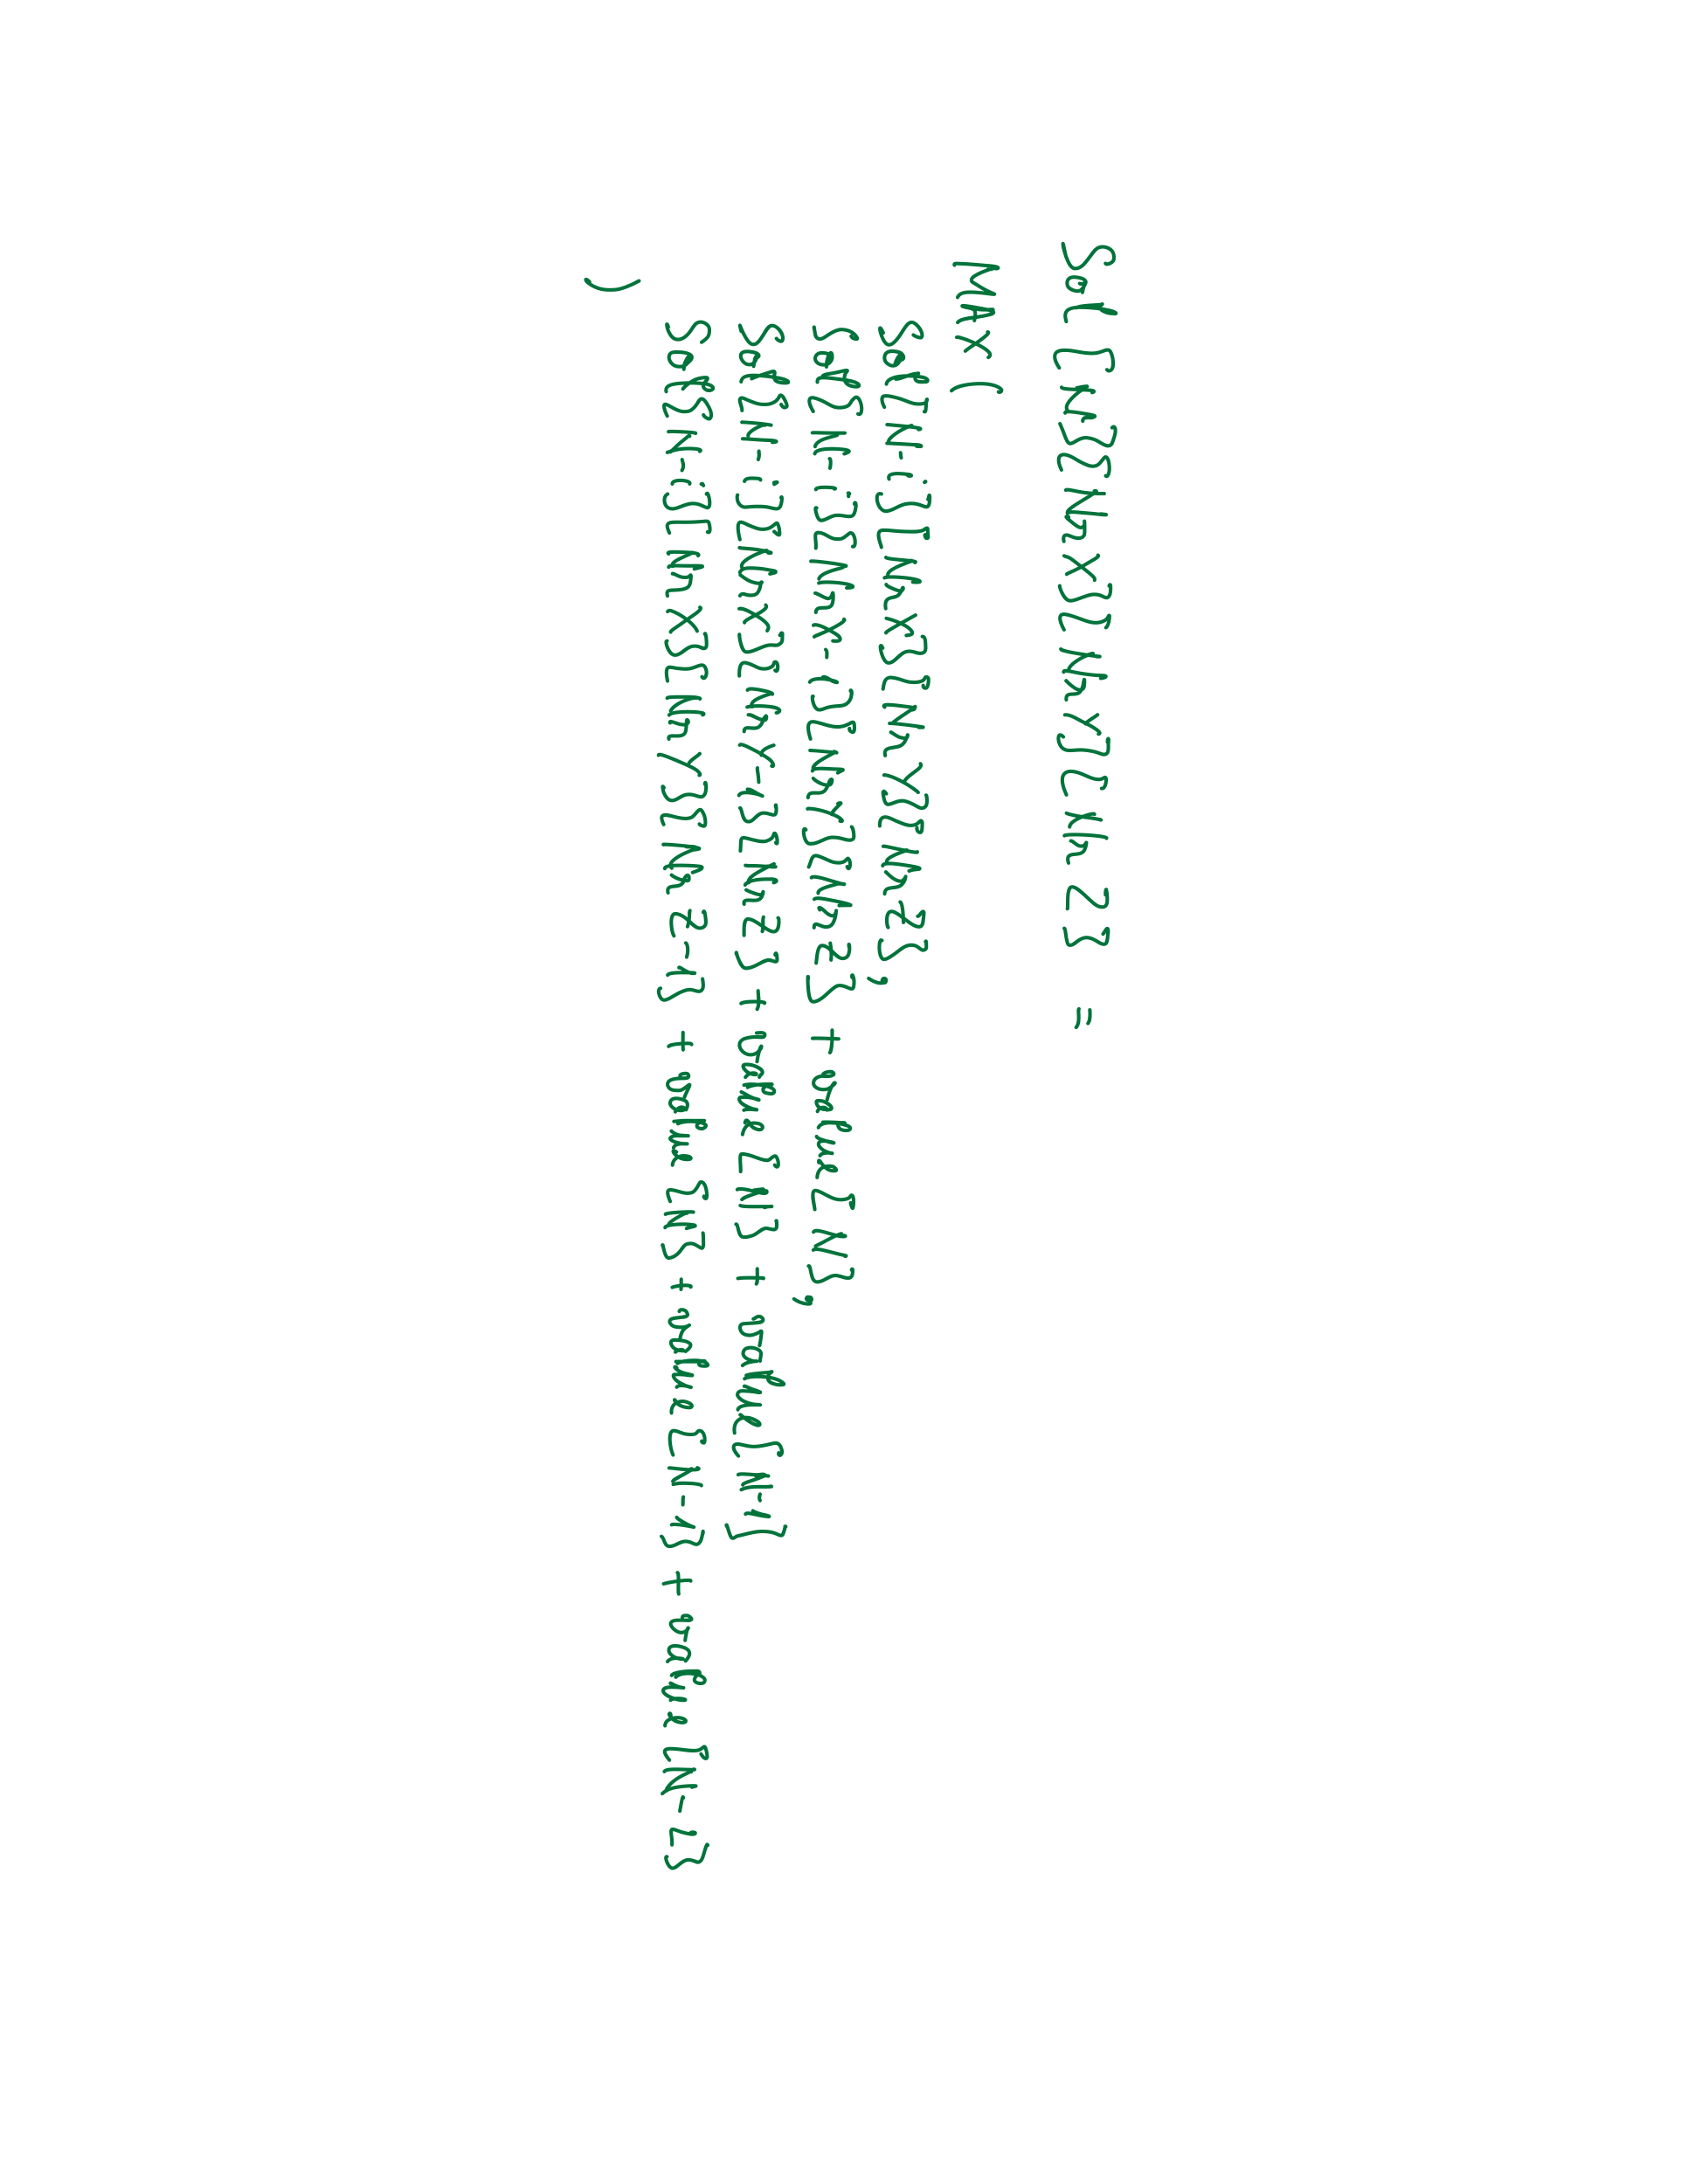 Sol [N][NrX][NrY][Nr Z] =
MAX (
Sol[N-i][NrX][NrY][NrZ],
Sol[N-i][NrX-1][NrY][NrZ] + value[N],
Sol[N-i][NrX][NrY-1][NrZ] + value[N] + value[N-1]
Sol[N-i][NrX][NrY][NrZ-1] + value[N] + value[N-1] + value[N-2]
)